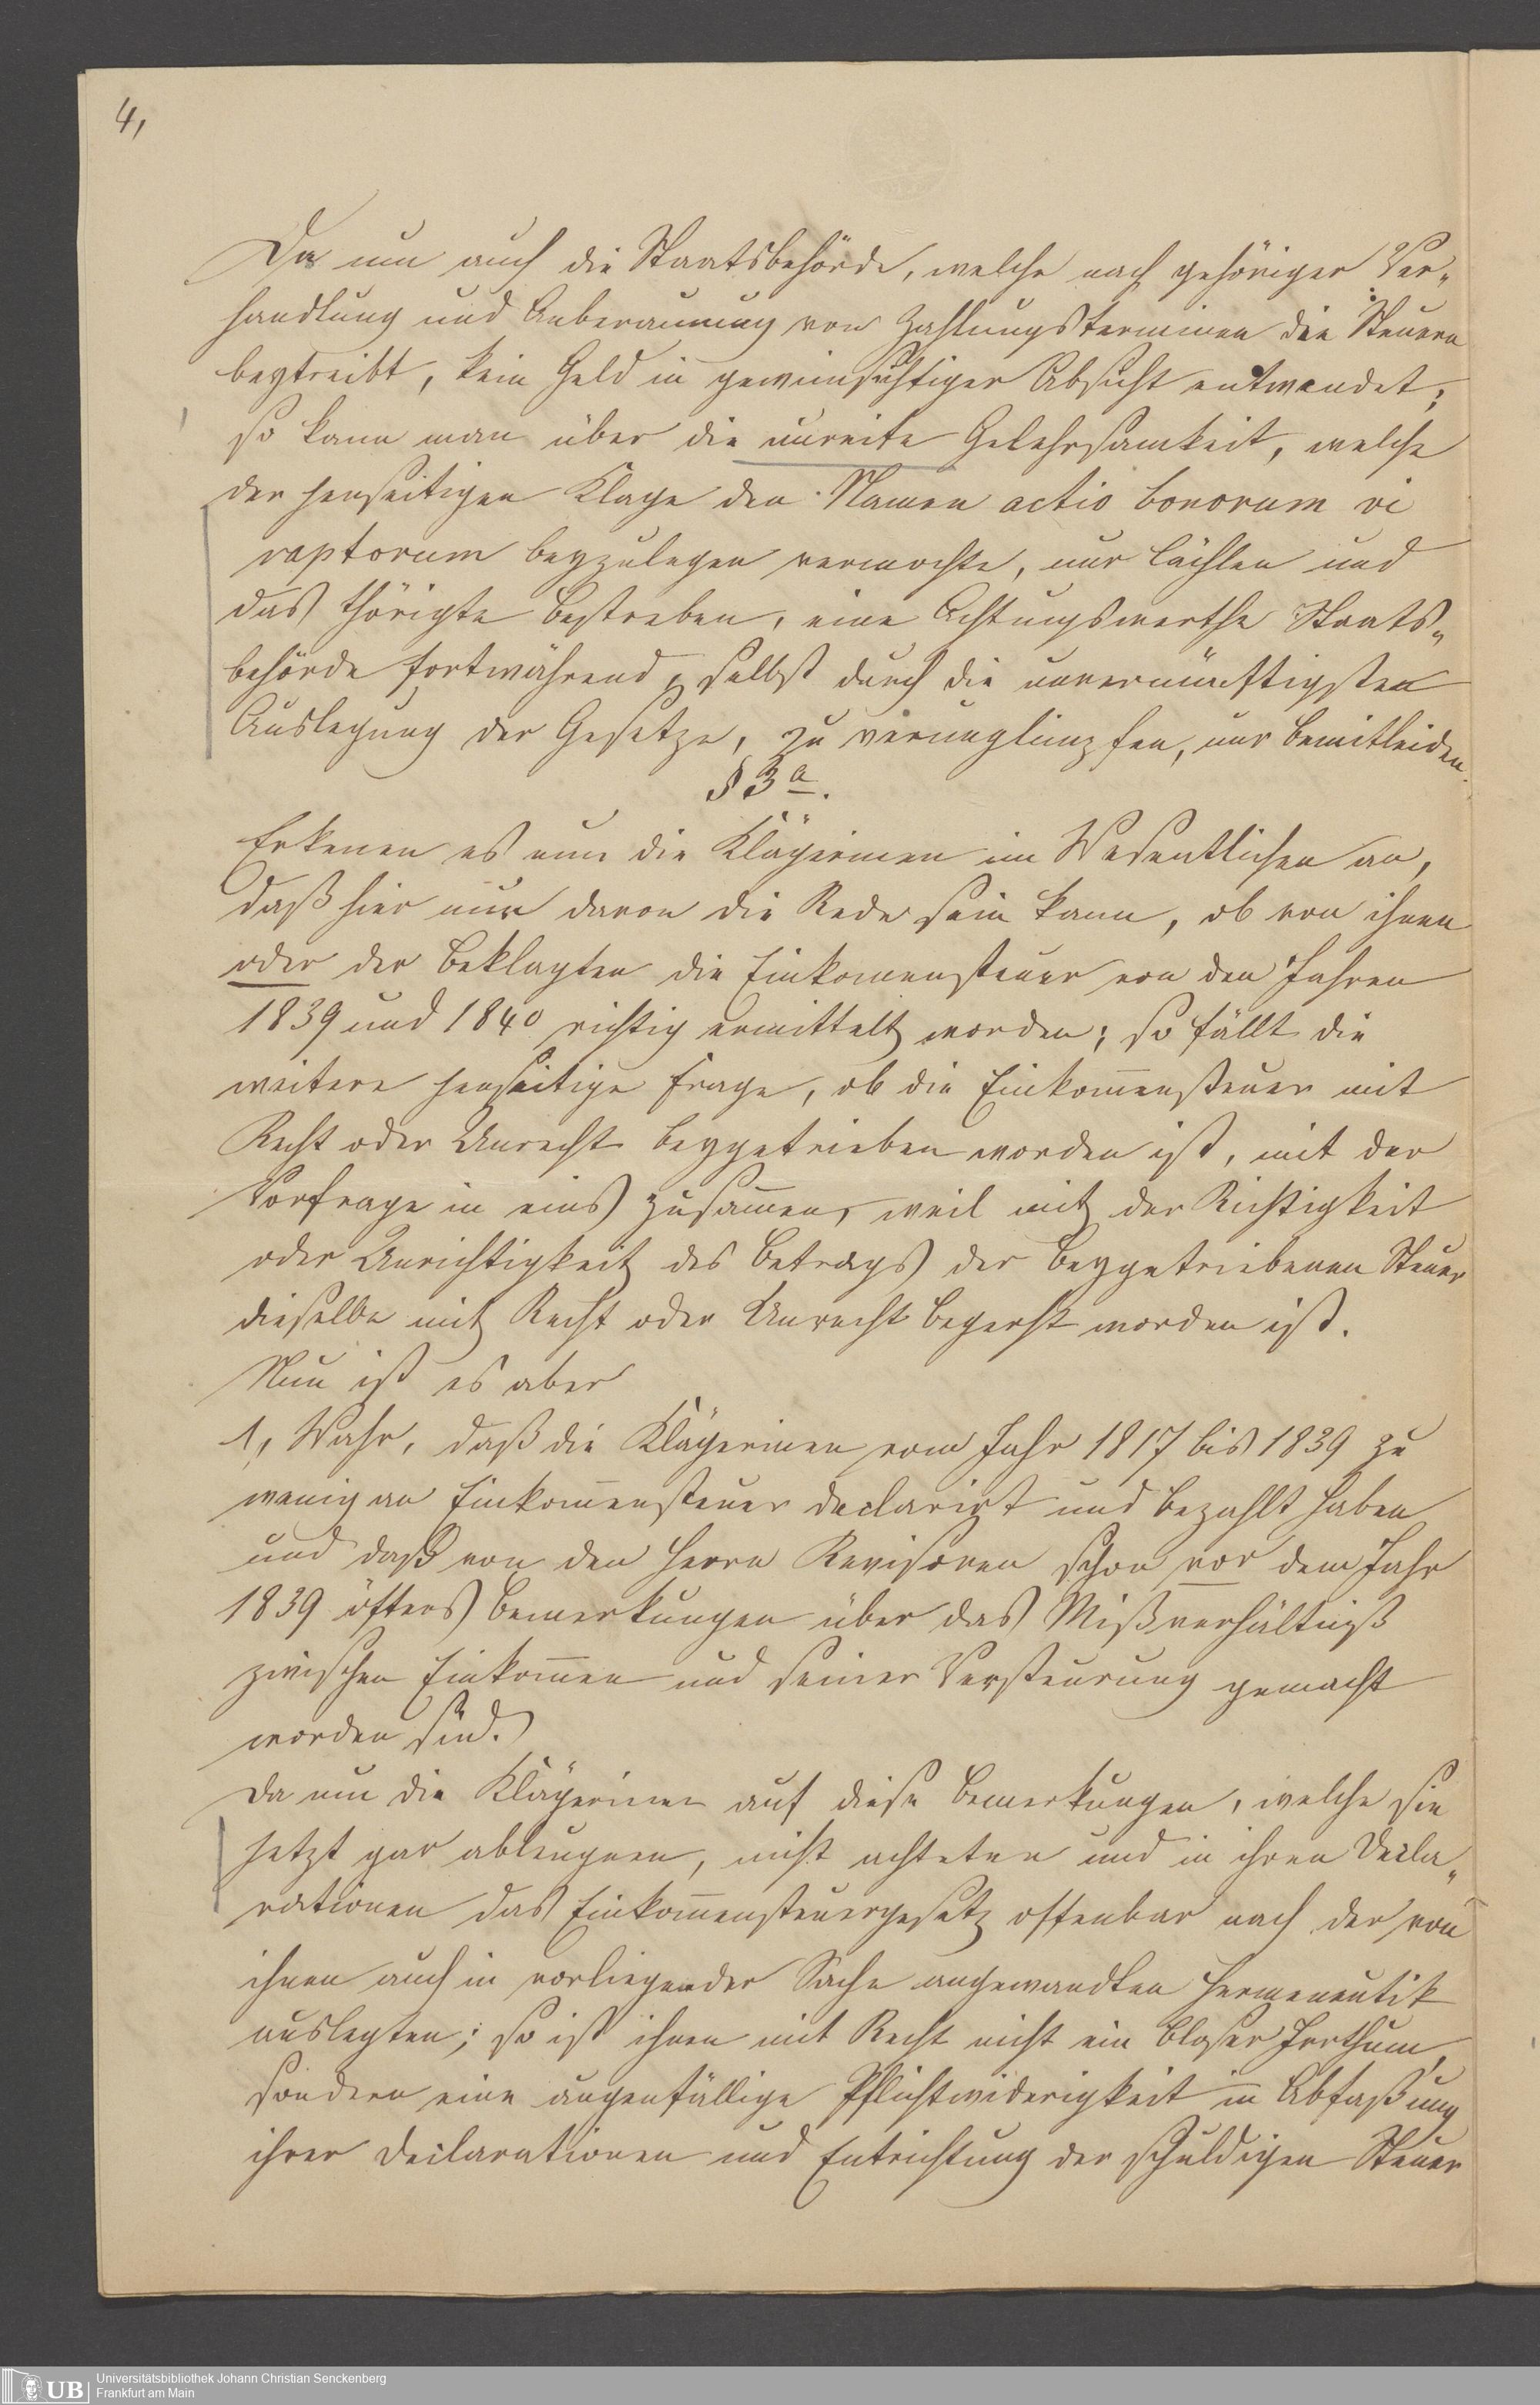 4,
Da nun auch die Staatsbehörde, welche nach gehöriger Ver„
handlung und Anberaumung von Zahlungsterminen die Steuern
beytreibt, kein Geld in gewinnsüchtiger Absicht entwendet;
so kann man über die unreife Gelehrsamkeit, welche
der jenseitigen Klage den Namen actio bonorum vi
raptorum beyzulegen vermochte, nur lächlen und
das thörigte Bestreben, eine Achtungswerthe Staats„
behörde fortwährend, selbst durch die unvernünftigsten
Auslegung der Gesetze, zu verunglimpfen, nur bemitleiden.
§ 3a.
Erkenen es nun die Klägerinen im Wesentlichen an,
daß hier nur davon die Rede sein kann, ob von ihnen
oder der Beklagten die Einkomensteuer von den Jahren
1839 und 1840 richtig ermittelt worden; so fällt die
weitere jenseitige Frage, ob die Einkom̄ensteuer mit
Recht oder Unrecht beygetrieben worden ist, mit der
Vorfrage in eins zusam̄en, weil mit der Richtigkeit
oder Unrichtigkeit des Betrags der beygetriebenen Steuer
dieselbe mit Recht oder Unrecht begehrt worden ist.
Nun ist es aber
1, Wahr, daß die Klägerinen vom Jahr 1817 bis 1839 zu
wenig an Einkom̄ensteuer declarirt und bezahlt haben
und daß von den Herrn Revisoren schon vor dem Jahr
1839 öfters Bemerkungen über das Mißverhältniß
zwischen Einkom̄en und seiner Versteurung gemacht
worden sind.
Da nun die Klägerinen auf diese Bemerkungen, welche sie
jetzt gar ableugnen, nicht achteten und in ihren Decla„
rationen das Einkom̄ensteuergesetz offenbar nach der von
ihnen auch in vorliegender Sache angewandten Hermeneutik
auslegten; so ist ihnen mit Recht nicht ein bloser Irrthum,
sondern eine augenfällige Pflichtwidrigkeit in Abfaßung
ihrer Declarationen und Entrichtung der schuldigen Steuer
UB
Universitätsbibliothek Johann Christian Senckenberg
Frankfurt am Main